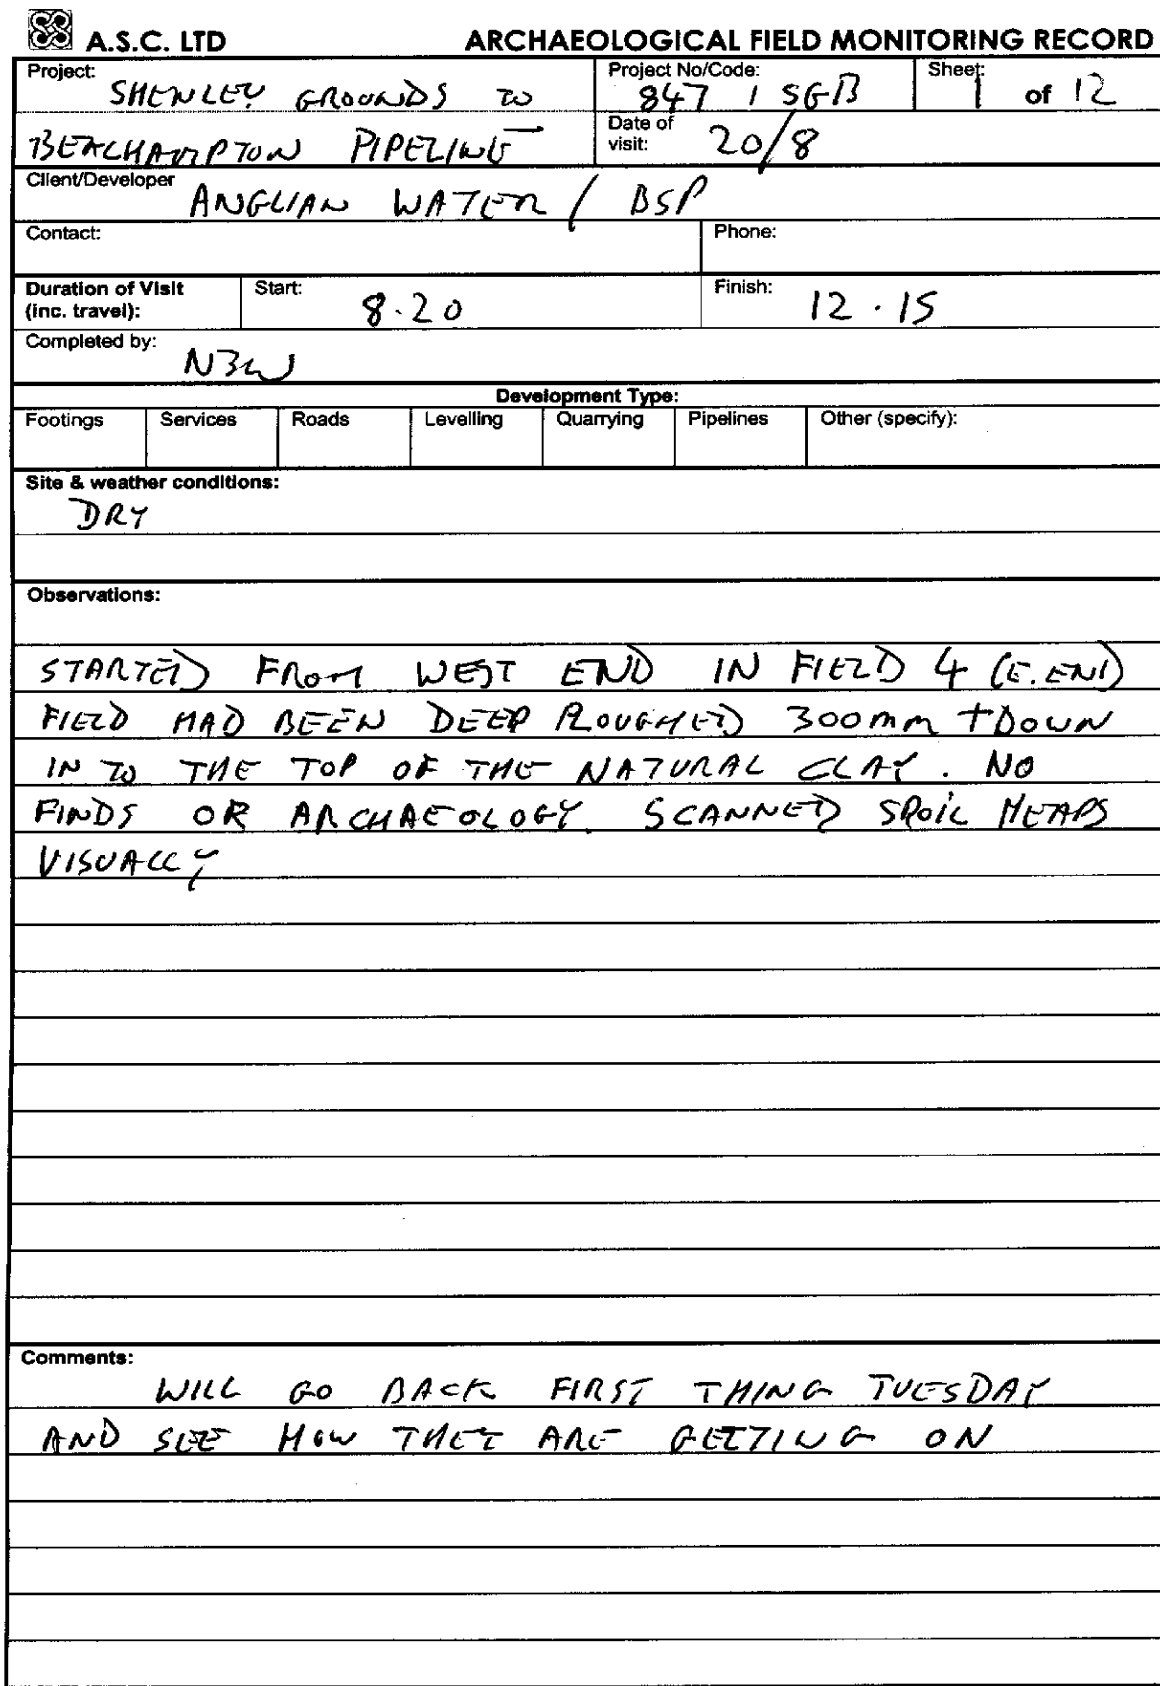 A.S.C. LTD ARCHAEOLOGICAL FIELD MONITORING RECORD
Project: SHENLEY GROUNDS TO
BEACHAMPTON PIPELINE
Project No/Code: 847 / SGB
Sheet: 1 of 12
Date of visit: 20/8
Client/Developer ANGLIAN WATER / BSP
Contact: Phone:
Duration of Visit (inc. travel): Start: 8.20 Finish: 12.15
Completed by: NBW
Development Type:
Footings Services Roads Levelling Quarrying Pipelines Other (specify):
Site & weather conditions:
DRY
Observations:
STARTED FROM WEST END IN FIELD 4 (E.END)
FIELD HAD BEEN DEEP PLOUGHED 300mm + DOWN
IN TO THE TOP OF THE NATURAL CLAY. NO
FINDS OR ARCHAEOLOGY. SCANNED SPOIL HEAPS
VISUALLY
Comments:
WILL GO BACK FIRST THING TUESDAY
AND SEE HOW THEY ARE GETTING ON